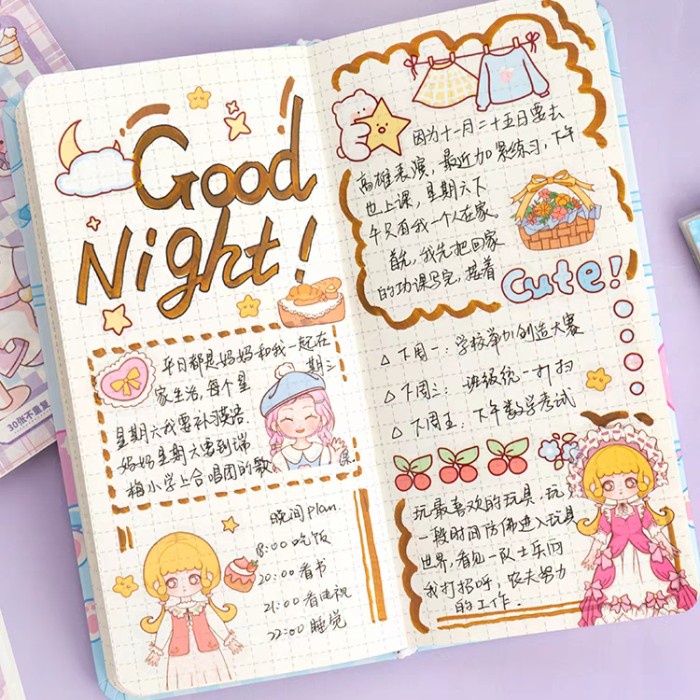 Good
Night!
平日都是妈妈和我一起在
家生活,每个星 期三
星期六我要补英语
妈妈星期六要到端
梅小学上合唱团的歌 课.
晚间plan.
18:00 吃饭
20:00 看书
21:00 看电视
22:00 睡觉
因为十一月二十五日要去
高雄表演,最近加紧练习,下午
也上课,星期六下
午只有我一个人在家.
首先,我先把回家
的功课写完,接着
Cute!
△下周一:学校举办创造大赛
△下周三:班级统一打扫
△下周五:下午数学考试
玩最喜欢的玩具,玩
一段时间仿佛进入玩具
世界,看见一队士兵向
我打招呼,农夫努力
的工作.
30张不重复